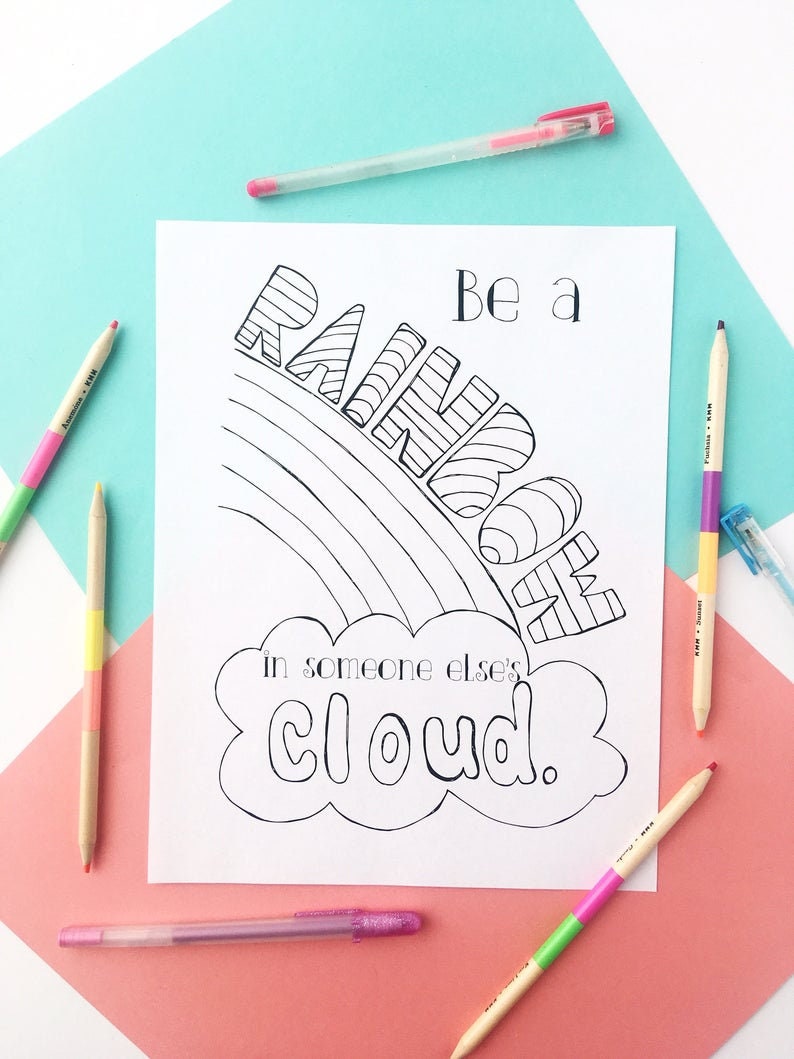 Be a
RAINBOW
in someone else's
cloud.
Anemone • KMM
Fuchsia • KMM
KMM • Sunset
KMM